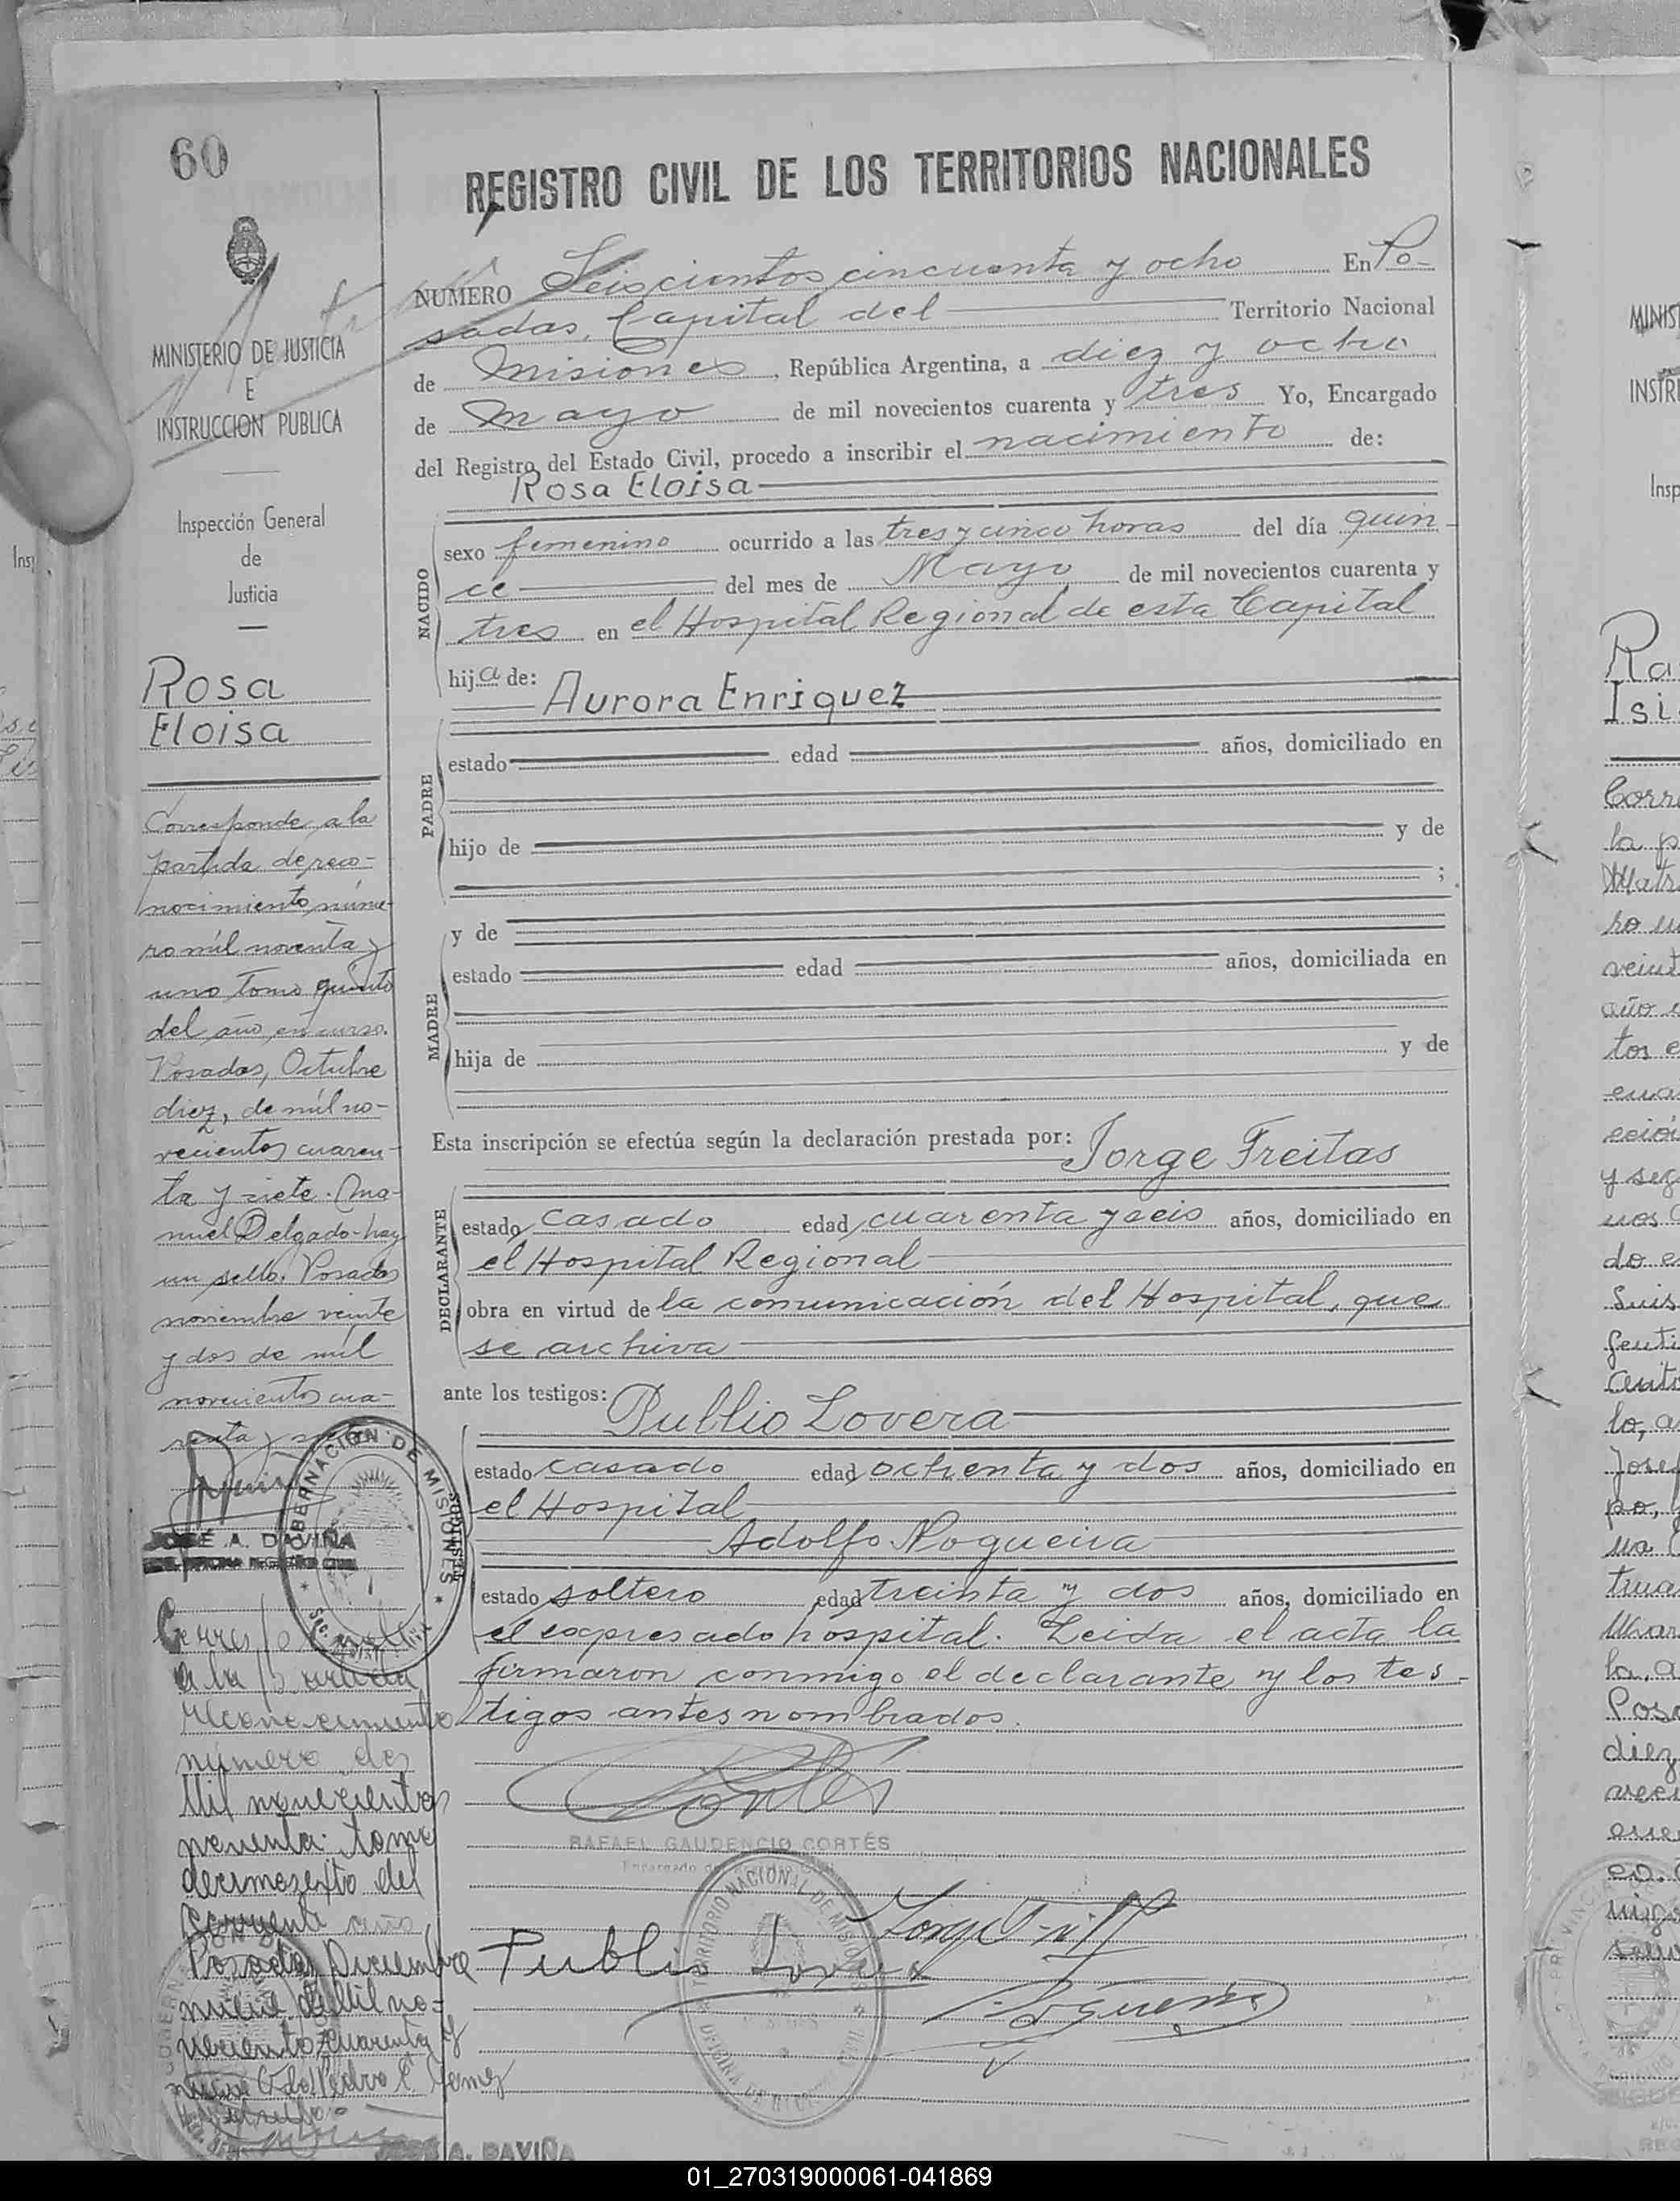 60
MINISTERIO DE JUSTICIA
E
INSTRUCCION PUBLICA
Inspección General
de
Justicia
Rosa
Eloisa
Corresponde a la
partida de reco-
nocimiento núme-
ro mil noventa y
uno Tomo quinto
del año en curso.
Posadas, Octubre
diez, de mil no-
vecientos cuaren-
ta y siete. Ma-
nuel Delgado-hay
un sello. Posadas
noviembre veinte
y dos de mil
novecientos cua-
renta y
JOSÉ A. DAVIÑA
GOBERNACION DE MISIONES
a la
reconocimiento
número dos
Mil novecientos
noventa. tomo
decimosexto del
corriente año
Posadas, Diciembre
nueve de Mil no-
veciento cuarenta y
nueve Gdo. Pedro C. Gomez
A. DAVIÑA
REGISTRO CIVIL DE LOS TERRITORIOS NACIONALES
NUMERO Seiscientos cincuenta y ocho En Po-
sadas, Capital del Territorio Nacional
de Misiones, República Argentina, a diez y ocho
de Mayo de mil novecientos cuarenta y tres Yo, Encargado
del Registro del Estado Civil, procedo a inscribir el nacimiento de:
Rosa Eloisa
NACIDO
sexo femenino ocurrido a las tres y cinco horas del día quin-
ce del mes de Mayo de mil novecientos cuarenta y
tres en el Hospital Regional de esta Capital
hija de:
Aurora Enriquez
PADRE
estado edad años, domiciliado en
hijo de y de
;
y de
MADRE
estado edad años, domiciliada en
hija de y de
Esta inscripción se efectúa según la declaración prestada por: Jorge Freitas
DECLARANTE
estado casado edad cuarenta y seis años, domiciliado en
el Hospital Regional
obra en virtud de la comunicación del Hospital, que
se archiva
ante los testigos: Publio Lovera
TESTIGOS
estado casado edad ochenta y dos años, domiciliado en
el Hospital
Adolfo Nogueira
estado soltero edad treinta y dos años, domiciliado en
el expresado hospital. Leida el acta la
firmaron conmigo el declarante y los tes-
tigos antes nombrados.
RAFAEL GAUDENCIO CORTÉS
Encargado del
TERRITORIO NACIONAL DE MISIONES
Publio Lovera
01_270319000061-041869